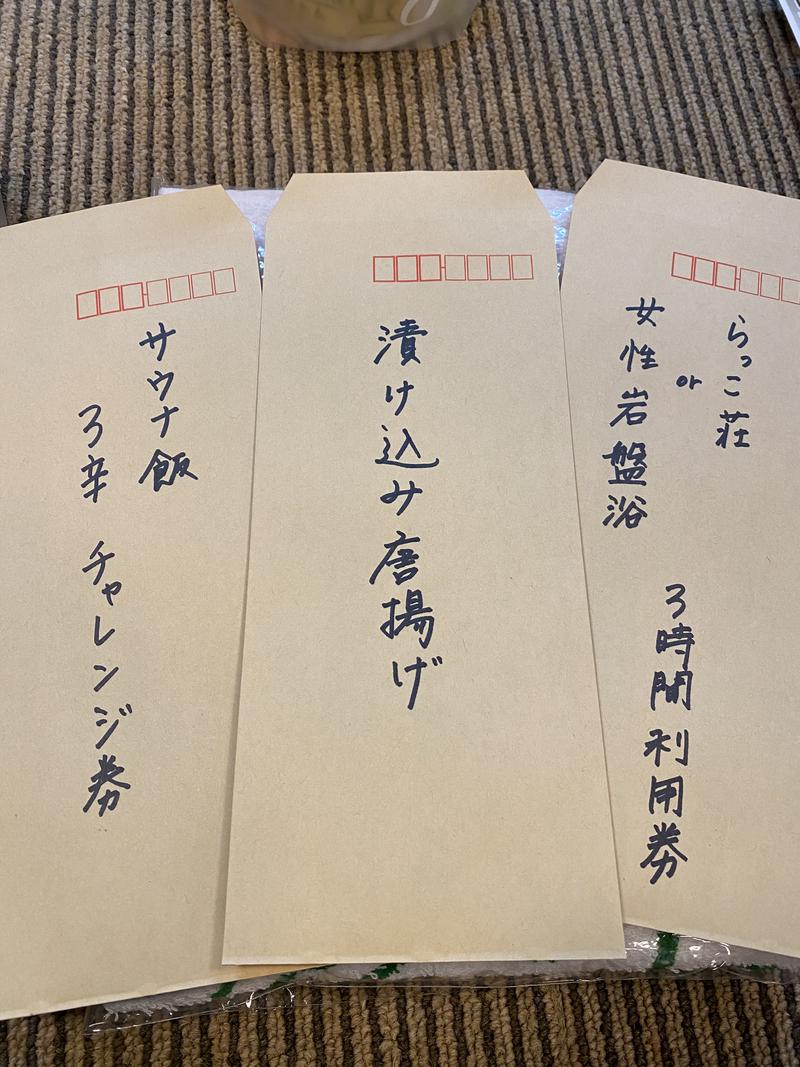 らっこ荘
or
女性岩盤浴
3時間利用券
漬け込み唐揚げ
サウナ飯
3辛 チャレンジ券